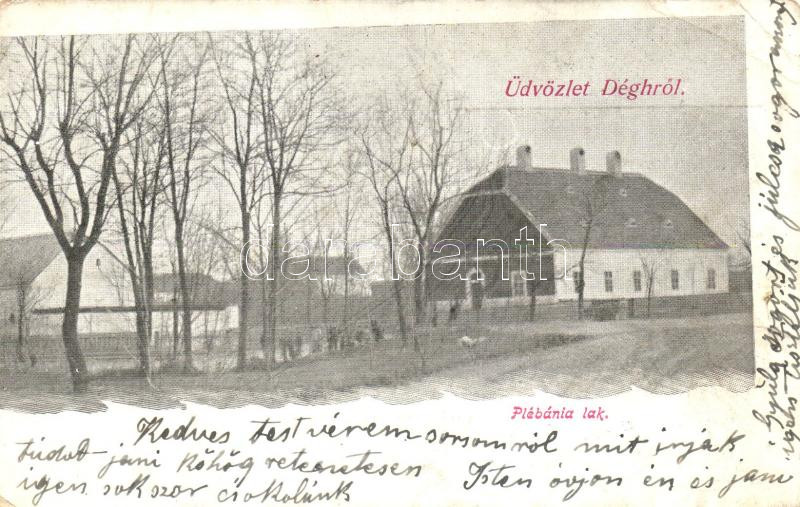 Üdvözlet Déghről.
darabanth
Plébánia lak.
Kedves test vérem sorsomról mit irjak
tudod jani köhög retenetesen Isten óvjon én és jani
igen sokszor csokolúnk
Gyula sógor és julcsa sogor
igen